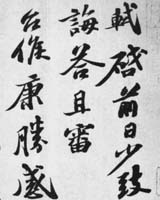 軾啓前日少致
誨答且審
台候康勝感